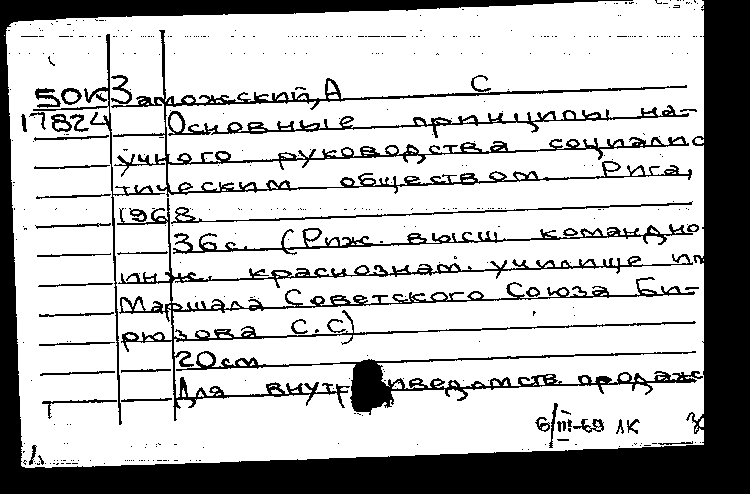 50К Заможский, А С
17824 Основные принципы на-
учного руководства социалис
тическим обществом. Рига,
1968.
36с. (Риж. высш командно-
инж. краснознам. училище им
Маршала Советского Союза Би-
рюзова С.С)
20см
Для внутриведомств. продаж
6/III-69 ЛК